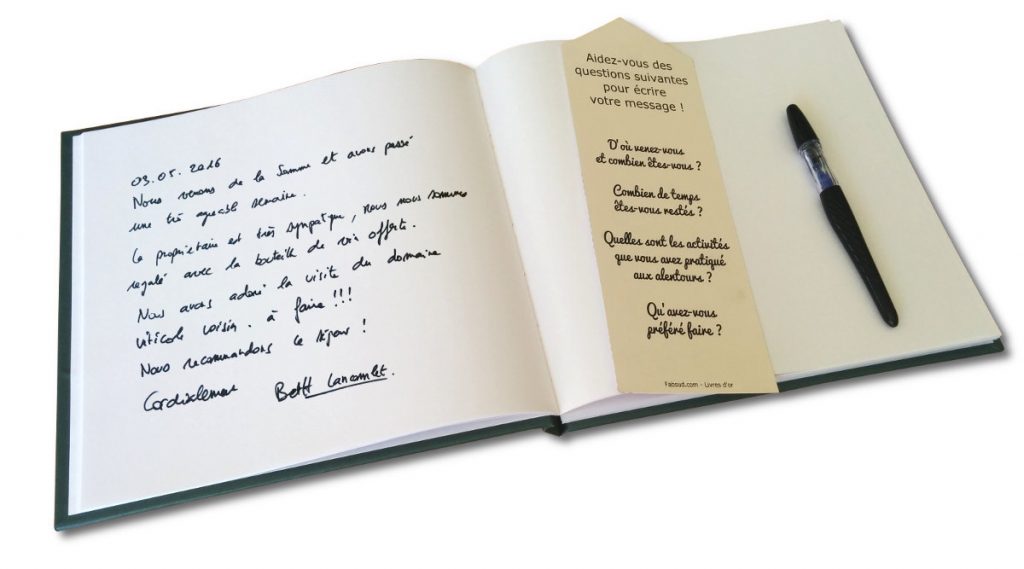 03.05.2016
Nous venons de la Somme et avons passé
une très agréable semaine.
Le propriétaire est très sympatique, nous nous sommes
régalé avec la bouteille de vin offerte.
Nous avons adoré la visite du domaine
viticole voisin. à faire !!!
Nous recommandons ce séjour !
Cordialement Lancomlet.
Aidez-vous des
questions suivantes
pour écrire
votre message !
D'où venez-vous
et combien êtes-vous ?
Combien de temps
êtes-vous restés ?
Quelles sont les activités
que vous avez pratiqué
aux alentours ?
Qu'avez-vous
préféré faire ?
Fabsud.com - Livres d'or